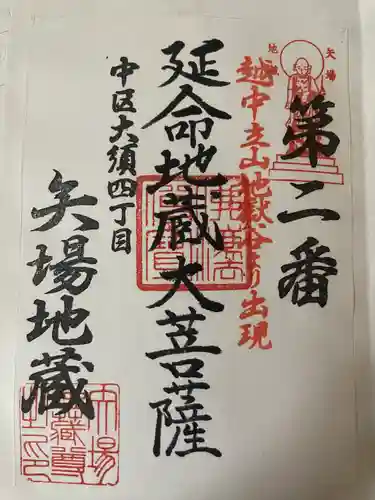 矢場
地
第二番
越中立山地獄谷より出現
延命地蔵大菩薩
中区大須四丁目
矢場地蔵